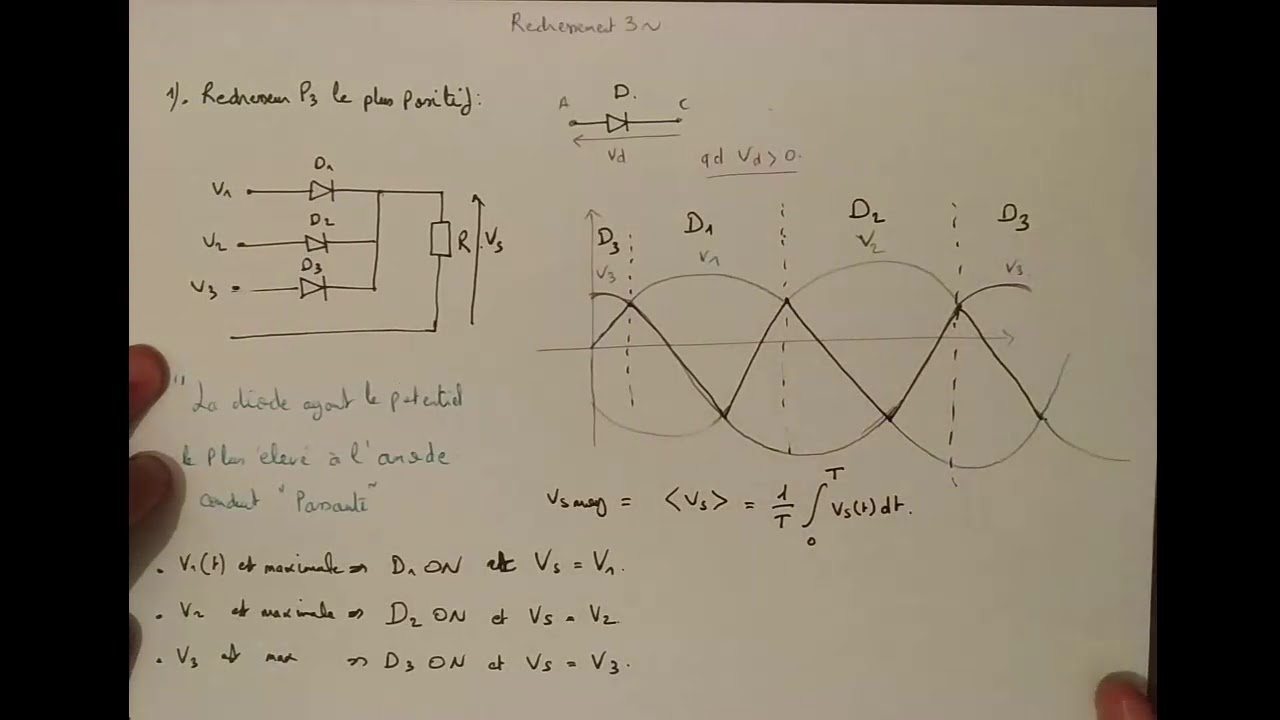 Redressement 3~
1). Redresseur P3 le plus positif:
A D. C
Vd
qd Vd > 0.
V1 D1
V2 D2
V3 D3
R Vs
D3 D1 D2 D3
V3 V1 V2 V3
"La diode ayant le potentiel
le plus élevé à l'anode
conduit "Passante"
Vsmoy = <Vs> = 1/T ∫₀ᵀ Vs(t) dt.
. V1(t) est maximale ⇒ D1 ON et Vs = V1.
. V2 est maximale ⇒ D2 ON et Vs = V2.
. V3 est max ⇒ D3 ON et Vs = V3.